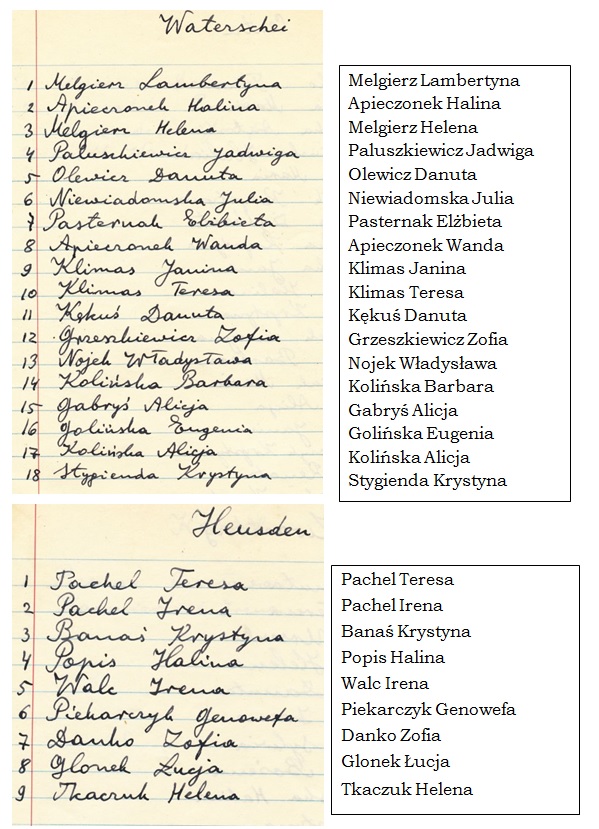 Waterschei
1 Melgierz Lambertyna
2 Apieczonek Halina
3 Melgierz Helena
4 Paluszkiewicz Jadwiga
5 Olewicz Danuta
6 Niewiadomska Julia
7 Pasternak Elżbieta
8 Apieczonek Wanda
9 Klimas Janina
10 Klimas Teresa
11 Kękuś Danuta
12 Grzeszkiewicz Zofia
13 Nojek Władysława
14 Kolińska Barbara
15 Gabryś Alicja
16 Golińska Eugenia
17 Kolińska Alicja
18 Stygienda Krystyna
Melgierz Lambertyna
Apieczonek Halina
Melgierz Helena
Paluszkiewicz Jadwiga
Olewicz Danuta
Niewiadomska Julia
Pasternak Elżbieta
Apieczonek Wanda
Klimas Janina
Klimas Teresa
Kękuś Danuta
Grzeszkiewicz Zofia
Nojek Władysława
Kolińska Barbara
Gabryś Alicja
Golińska Eugenia
Kolińska Alicja
Stygienda Krystyna
Heusden
1 Pachel Teresa
2 Pachel Irena
3 Banaś Krystyna
4 Popis Halina
5 Walc Irena
6 Piekarczyk Genowefa
7 Danko Zofia
8 Glonek Łucja
9 Tkaczuk Helena
Pachel Teresa
Pachel Irena
Banaś Krystyna
Popis Halina
Walc Irena
Piekarczyk Genowefa
Danko Zofia
Glonek Łucja
Tkaczuk Helena